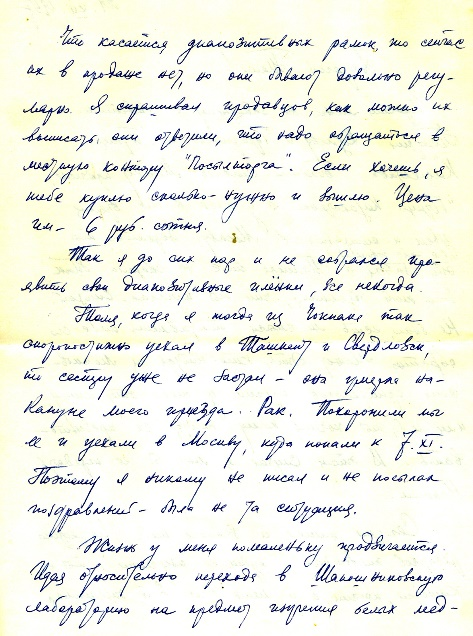 Что касается диапозитивных рамок, то сейчас
их в продаже нет, но они бывают довольно регу-
лярно. Я спрашивал продавцов, как можно их
выписать, они ответили, что надо обращаться в
местную контору "Посылторга". Если хочешь, я
тебе куплю сколько-нужно и вышлю. Цена
им - 6 руб. сотня.
Так я до сих пор и не собрался про-
явить свои диапозитивные плёнки, все некогда.
Толя, когда я тогда из Чокпака так
скоропостижно уехал в Ташкент и Свердловск,
то сестру уже не застал - она умерла на-
кануне моего приезда. Рак. Похоронили мы
ее и уехали в Москву, куда попали к 7.XI.
Поэтому я никому не писал и не посылал
поздравлений - была не та ситуация.
Жизнь у меня помаленьку продвигается.
Идея относительно перехода в Шапошниковскую
лабораторию на предмет изучения белых мед-